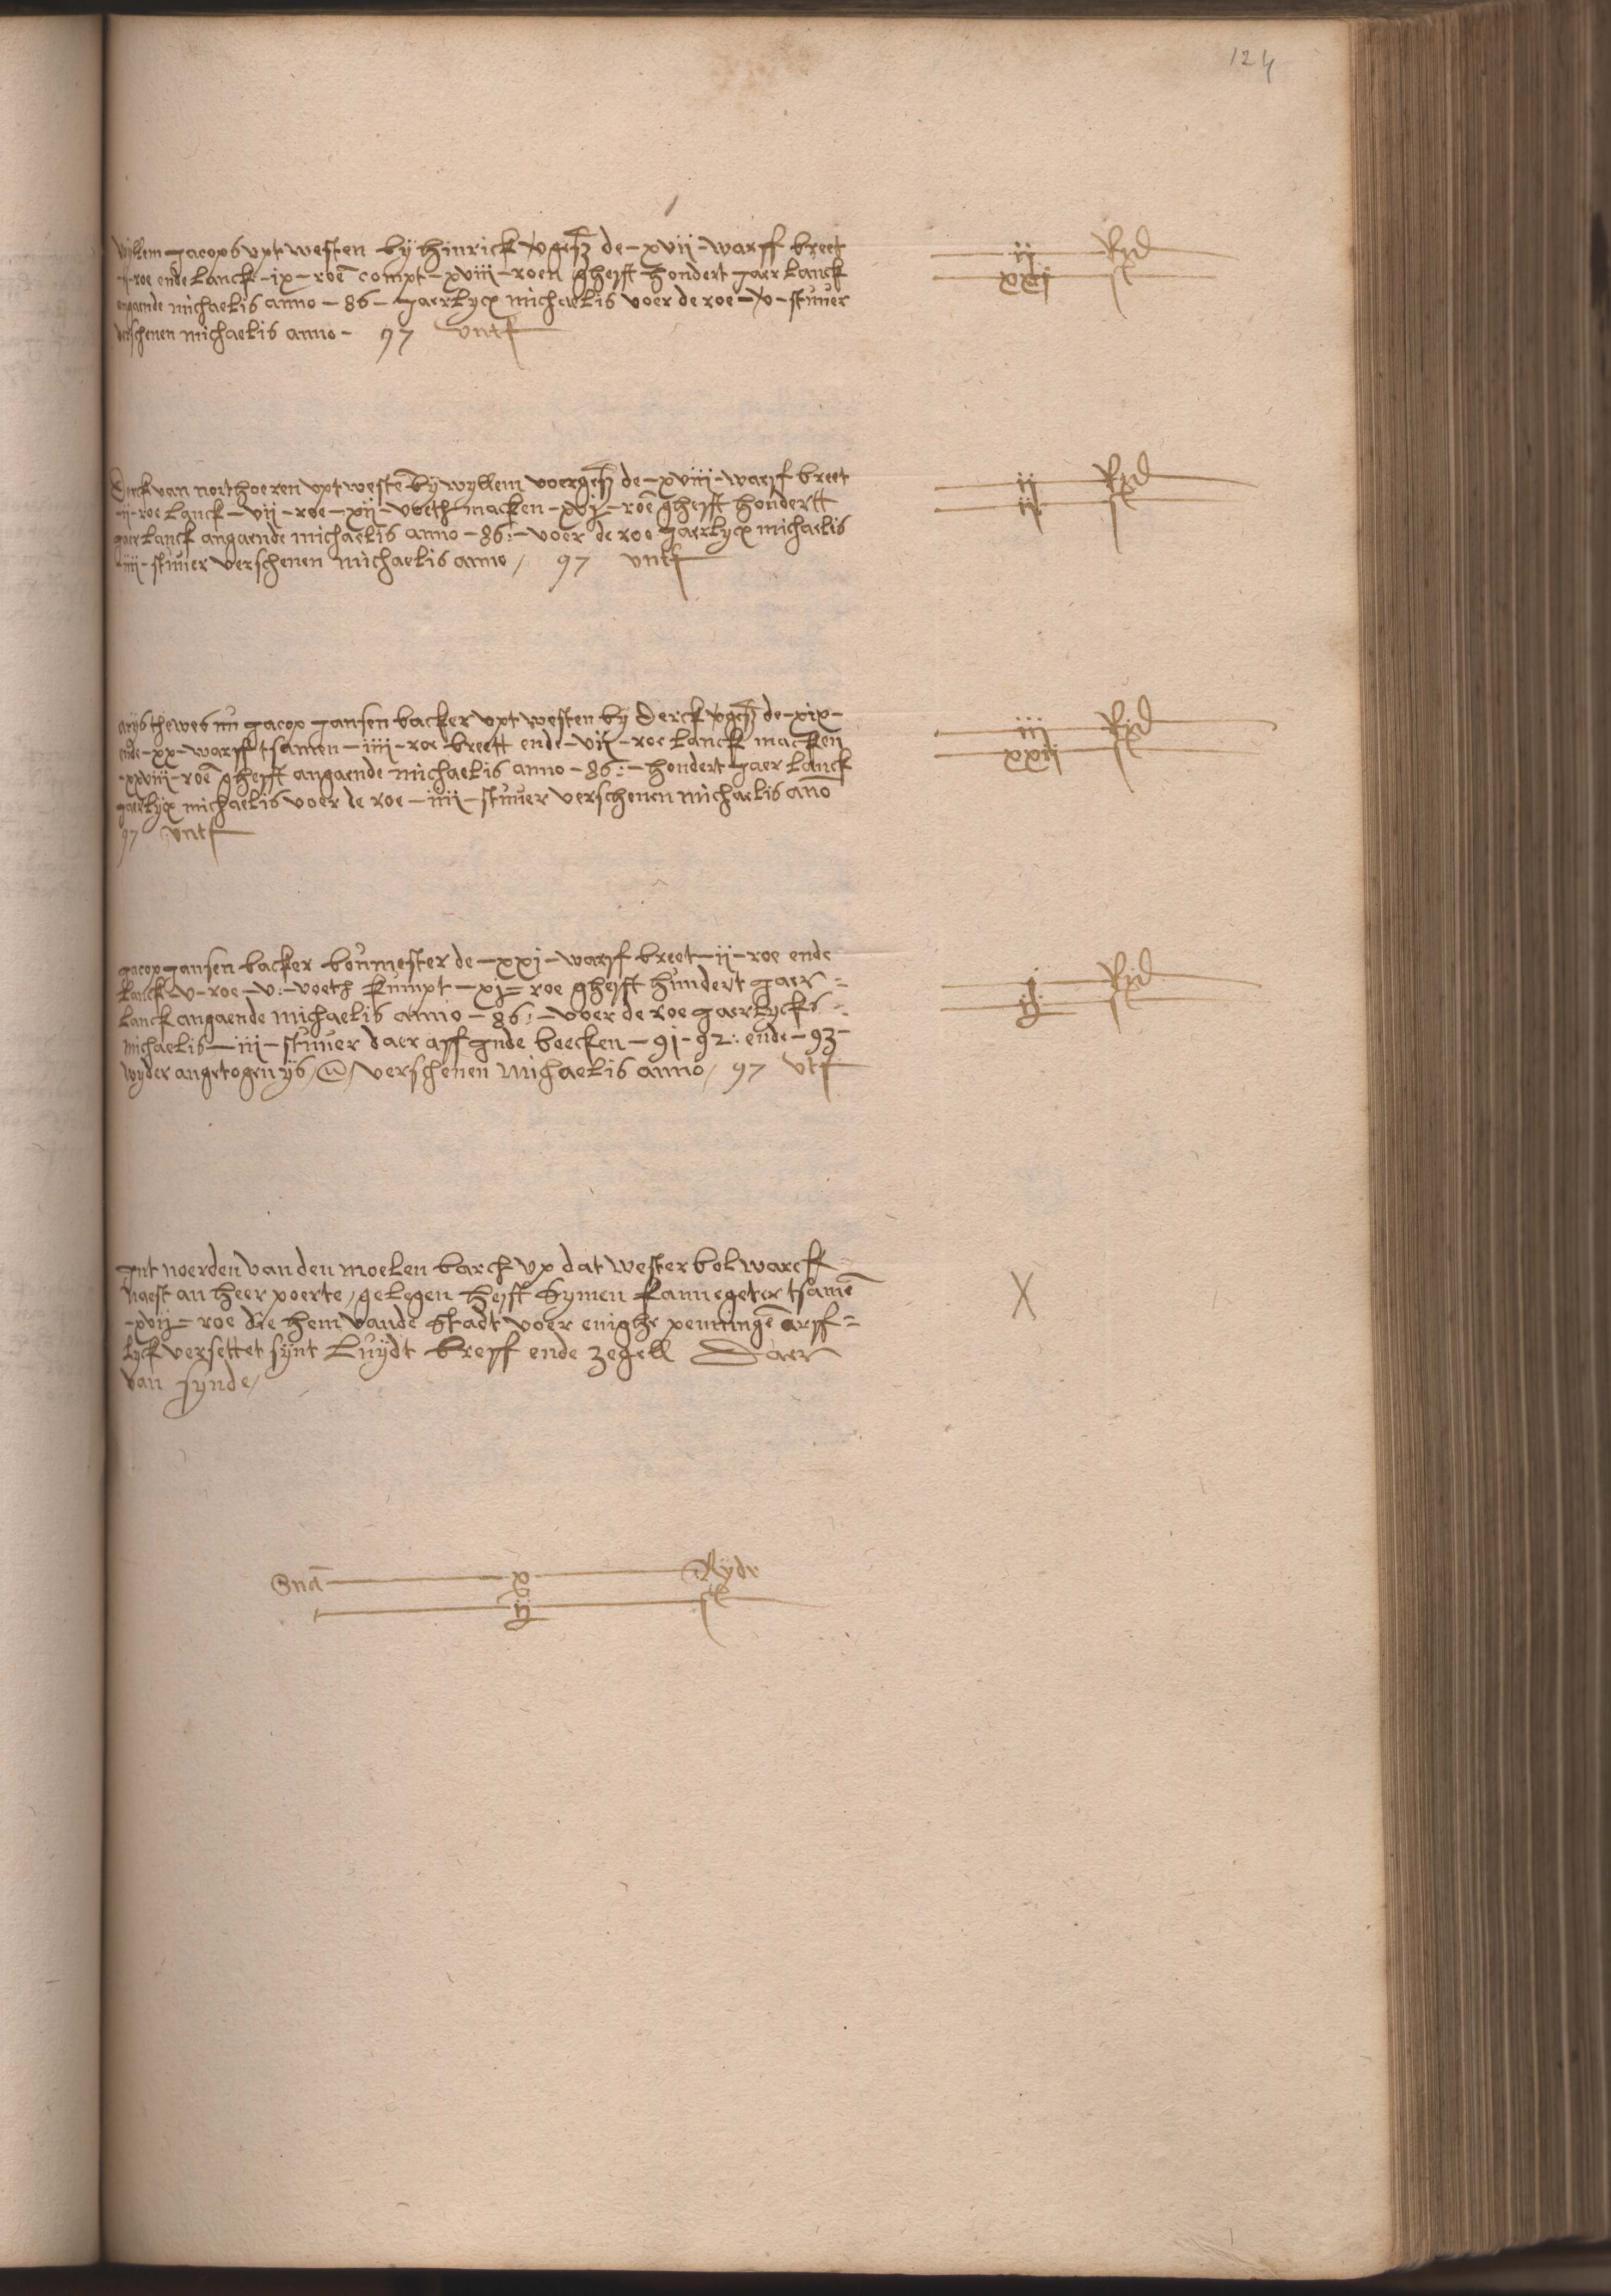 124
Wyllem Jacops vpt westen by Hinrick vorgesz de - xvii - warff breet ii Ryd
-ii- roe ende lanck - ix - roē compt - xviii - roen gheyft hondert jaer lanck xxij st
angaende michaelis anno - 86 - jaerlycx michaelis voer de roe - v - stuver
verschenen michaelis anno - 97 vntf
Dirck van northoeren vpt westē by wyllem voergesz de - xviii - warff breet ii Ryd
-ii- roe lanck - vii - roe - xii - voeth macken - xvj - roē gheyft hondertt ij st
jaer lanck angaende michaelis anno - 86 :- voer de roe jaerlycx michaelis
-iiii- stuver verschenen michaelis anno / 97 vntf
arys thewes nu Jacop Jansen backer vpt westen by Derck vorgesz de - xix - iii Ryd
ende - xx - warff tsamen - iiii - roe breett ende - vii - roe lanck macken xxij st
-xxviii- roē gheyft angaende michaelis anno - 86 :- hondert jaer lanck
jaerlycx michaelis voer de roe - iiii - stuver verschenen michaelis āno
97 vntf
Jacop Jansen backer boumester de - xxi - warff breet - ii - roe ende j Ryd
lanck - v - roe - v :- voeth kumpt - xj = roe gheyft hundert jaer = st
lanck angaende michaelis anno - 86 :- voer de roe jaerlycks
michaelis - iii - stuver daer aff Inde boecken - 91 - 92 : ende - 93 -
wyder angetogen ys / verschenen michaelis anno / 97 vtf
Int noerden van den moelen barch vp dat wester bolwarck
naest an heer poerte / gelegen heyft Symen kannegeter tsamē X
-xvij= roe die hem vande Stadt voer enighe penningē arff=
lyck versettet synt Luydt breyff ende zegell Daer
van synde /
Smā x Ryder
ij st